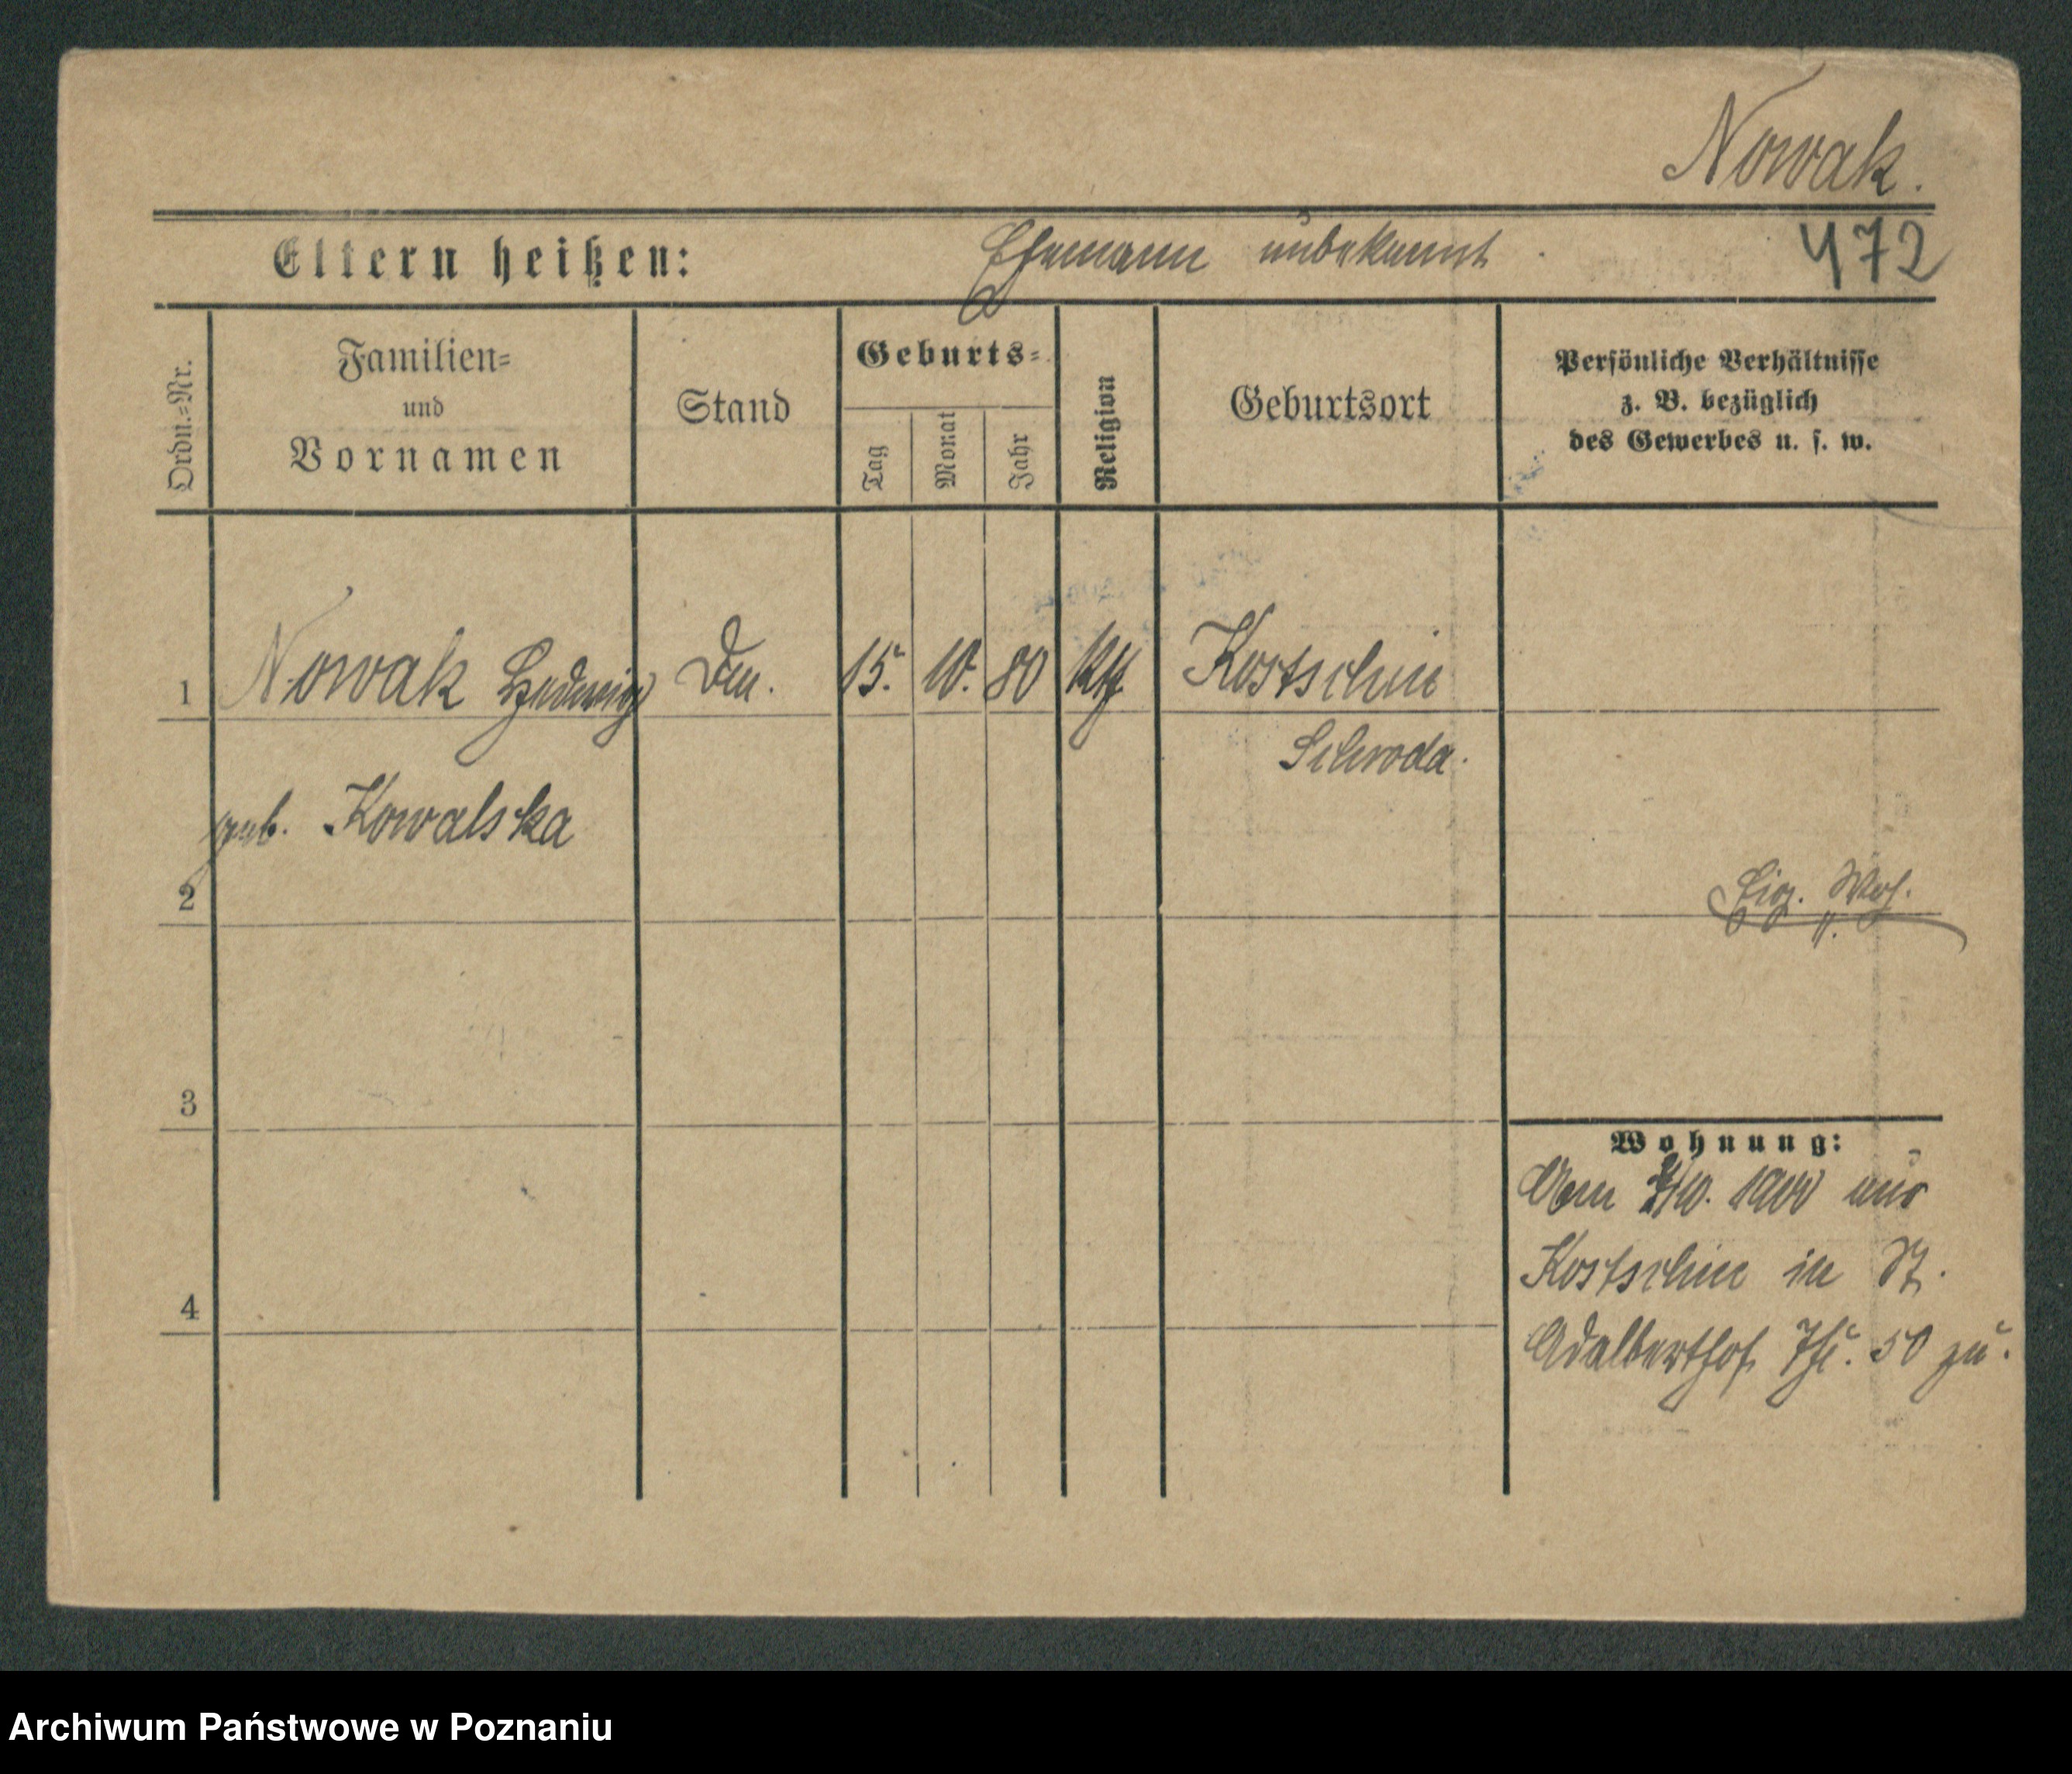 Nowak.
Eltern heißen: Ehemann unbekannt. 472
Ordn.=Nr.
Familien=
und
Vornamen
Stand
Geburts=
Tag
Monat
Jahr
Religion
Geburtsort
Persönliche Verhältnisse
z. B. bezüglich
des Gewerbes u. s. w.
1 Nowak Hedwig 15. 10. 80 kth Kostschin
Schroda.
geb. Kowalska
2
Eig. Woh.
3
Wohnung:
Am /10. 1900 aus
4
Kostschin in St.
Adalberthof. 50 zu.
Archiwum Państwowe w Poznaniu